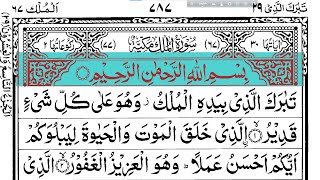 تَبٰرَكَ الَّذِيْ ٢٩ ٧٨٧ اَلْمُلْك ٦٧
اٰيَاتُهَا ٣٠ (٦٧) سُوْرَةُ الْمُلْكِ مَكِّيَّةٌ (٧٧) رُكُوْعَاتُهَا ٢
بِسْمِ اللّٰهِ الرَّحْمٰنِ الرَّحِيْمِ
تَبٰرَكَ الَّذِيْ بِيَدِهِ الْمُلْكُ ز وَهُوَ عَلٰى كُلِّ شَيْءٍ
قَدِيْرُ ۙ﴿١﴾ اۨلَّذِيْ خَلَقَ الْمَوْتَ وَالْحَيٰوةَ لِيَبْلُوَكُمْ
اَيُّكُمْ اَحْسَنُ عَمَلًا ؕ وَهُوَ الْعَزِيْزُ الْغَفُوْرُ ۙ﴿٢﴾ الَّذِيْ